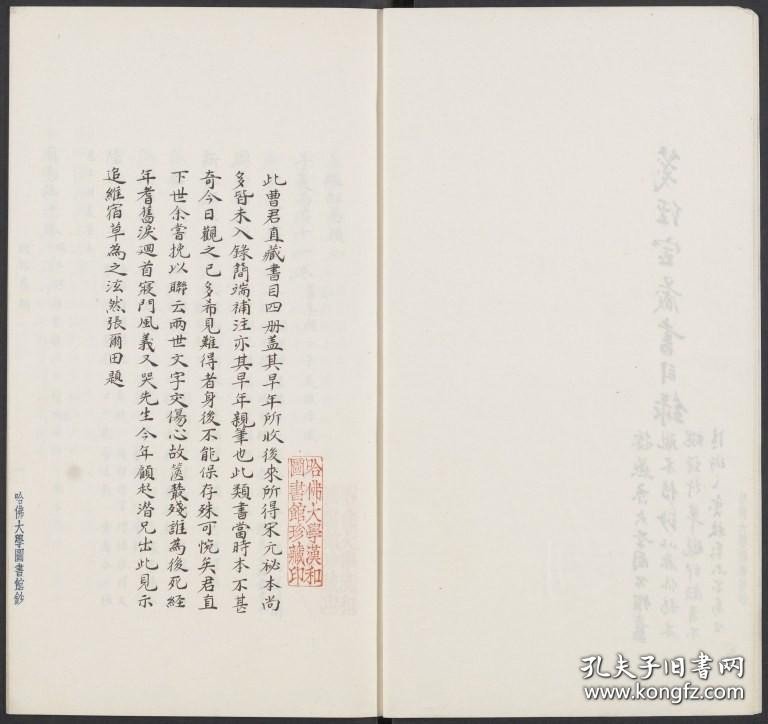 此曹君直藏書目四册蓋其早年所收後來所得宋元祕本尚
多皆未入錄簡端補注亦其早年親筆也此類書當時本不甚
奇今日觀之已多希見難得者身後不能保存殊可惋矣君直
下世余嘗挽以聯云兩世文字交傷心故篋叢殘誰為後死經
年耆舊淚迴首寢門風義又哭先生今年顧起潛兄出此見示
追維宿草為之泫然張爾田題
哈佛大學漢和
圖書館珍藏印
哈佛大學圖書館鈔
箋經室藏書目錄
孔夫子旧书网
www.kongfz.com